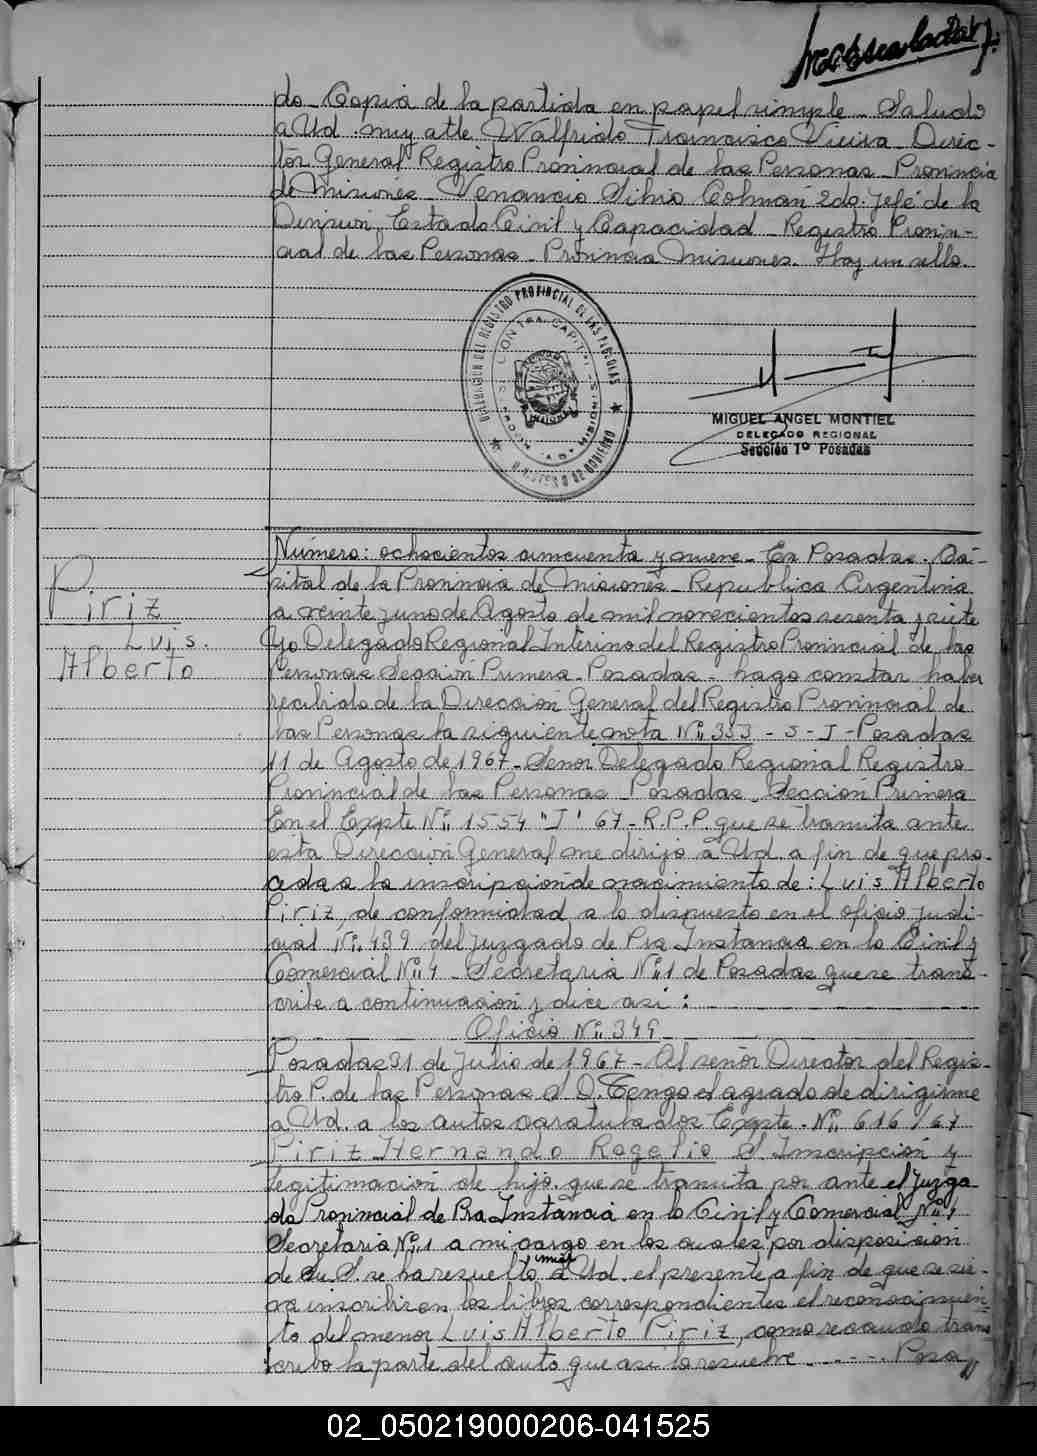 do_ Copia de la partida en papel simple_ Saludo
a Ud. muy atte. Walfrido Francisco Vieira_ Direc-
tor General Registro Provincial de las Personas_ Provincia
de Misiones_ Venancio Silvio Colman 2do. Jefe de la
Division Estado Civil y Capacidad_ Registro Provin-
cial de las Personas_ Provincia Misiones. Hay un sello.
DELEGACION DEL REGISTRO PROVINCIAL DE LAS PERSONAS
MINISTERIO DE GOBIERNO
MIGUEL ANGEL MONTIEL
DELEGADO REGIONAL
Sección 1º Posadas
Piriz
Luis.
Alberto
Número: ochocientos cincuenta y nueve_ En Posadas. Ca-
pital de la Provincia de Misiones_ Republica Argentina
a veinte y uno de Agosto de mil novecientos sesenta y siete
Yo Delegado Regional Interino del Registro Provincial de las
Personas Sección Primera_ Posadas_ hago constar haber
recibido de la Dirección General del Registro Provincial de
las Personas la siguiente nota Nº 353 - S - J - Posadas
11 de Agosto de 1967_ Señor Delegado Regional Registro
Provincial de las Personas_ Posadas_ Sección Primera
En el Expte Nº 1554 "J" 67_ R.P.P. que se tramita ante
esta Dirección General me dirijo a Ud. a fin de que pro-
ceda a la inscripción de nacimiento de: Luis Alberto
Piriz, de conformidad a lo dispuesto en el oficio judi-
cial Nº 439 del Juzgado de Pra Instancia en lo Civil y
Comercial Nº 1 _ Secretaria Nº 1 de Posadas que se trans-
cribe a continuación y dice asi:
Oficio Nº 349
Posadas 31 de Julio de 1967_ Al señor Director del Regis-
tro P. de las Personas S/D. Tengo el agrado de dirigirme
a Ud. a los autos caratulados Expte. Nº 616/67
Piriz Hernando Rogelio S/ Inscripción y
legitimación de hijo. que se tramita por ante el Juzga
do Provincial de Pra Instancia en lo Civil y Comercial Nº 1
Secretaria Nº 1 a mi cargo en los cuales por disposición
de Su S. se ha resuelto a Ud. el presente a fin de que se sir-
va inscribir en los libros correspondientes el reconocimien-
to del menor Luis Alberto Piriz, como recaudo trans
cribo la parte del auto que asi lo resuelve _ . _ . _ . Posa
02_050219000206-041525